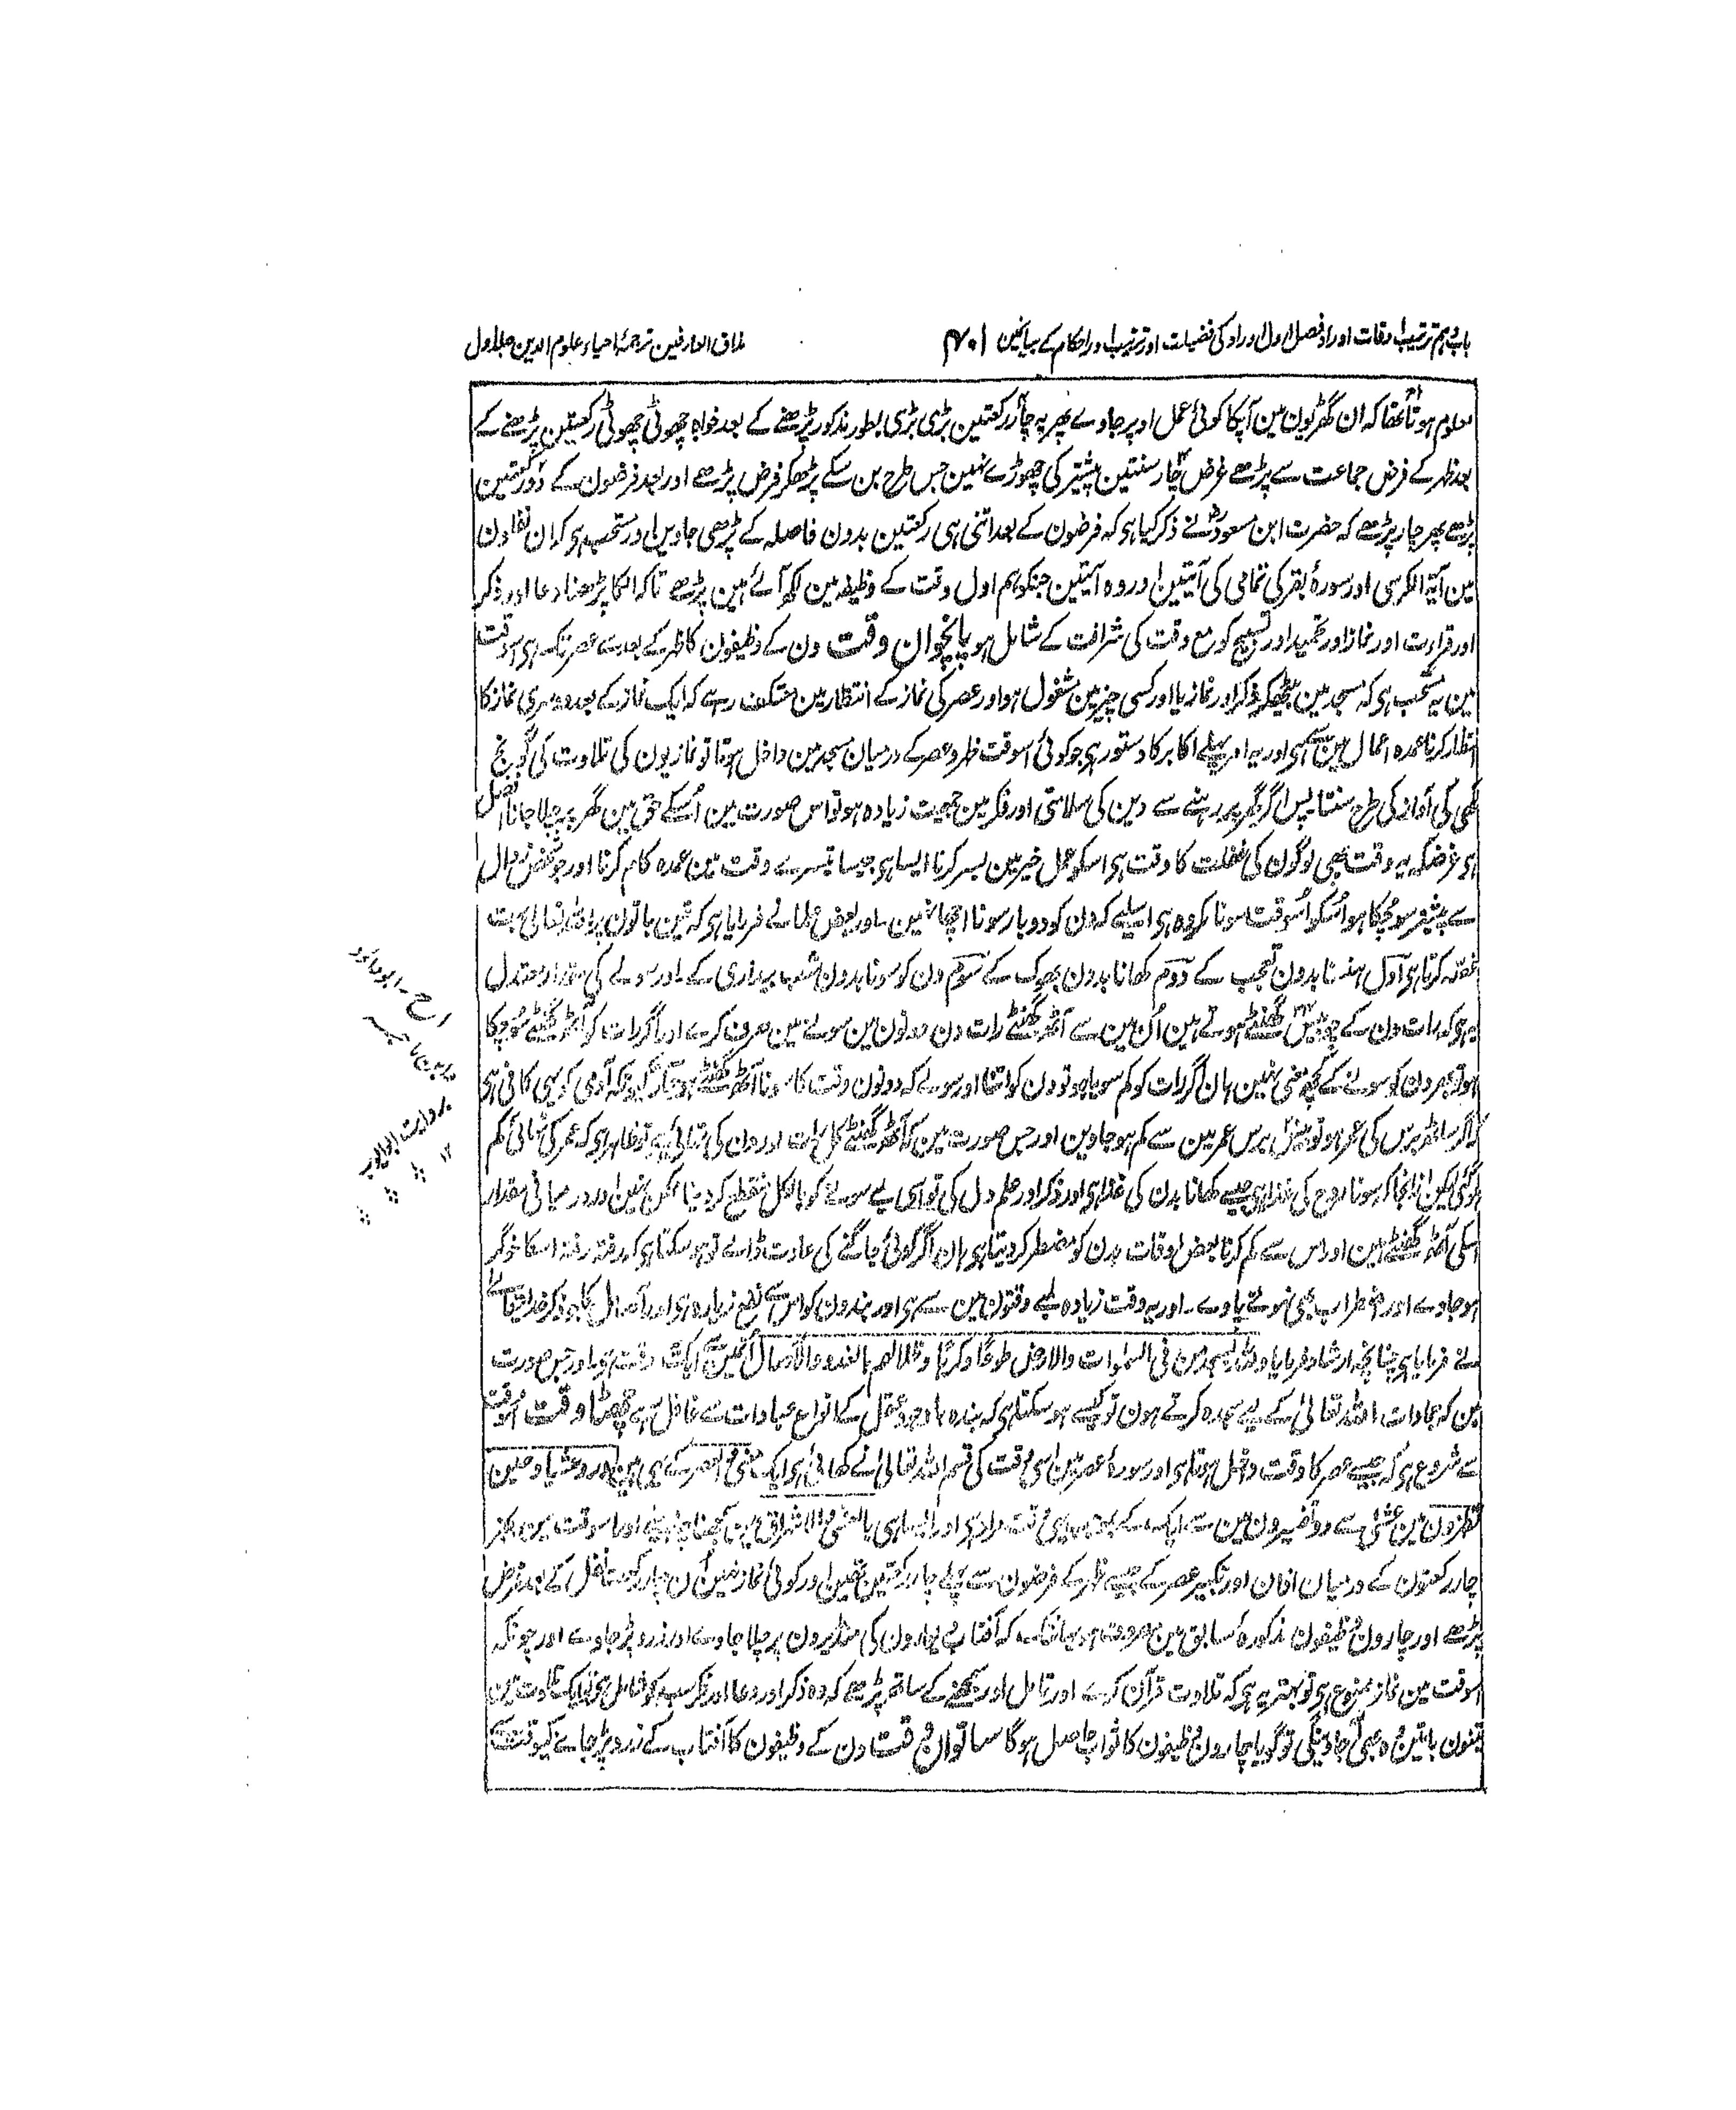 باب دہم ترتیب اوقات اوراد فصل اول اوراد کی فضیلت اور ترتیب اور احکام کے بیانمین
۷۰۱
مذاق العارفین ترجمۂ احیاء علوم الدین جلد اول
معلوم ہوتا تھا کہ ان گھڑیون مین آپکا کوئی عمل اوپر جاوے پھر یہ چار رکعتین بڑی بڑی بطور مذکور پڑھنے کے بعد خواہ چھوٹی چھوٹی رکعتین پڑھنے کے
بعد ظہر کے فرض جماعت سے پڑھے غرض چار سنتین پیشتر کی چھوڑے نہین جس طرح بن سکے پڑھکر فرض پڑھے اور بعد فرضون کے دو رکعتین
پڑھے پھر چار پڑھے کہ حضرت ابن مسعودؓ نے ذکر کیا ہی کہ فرضون کے بعد اتنی ہی رکعتین بدون فاصلہ کے پڑھی جاوین اور مستحب ہی کہ ان نفلون
مین آیۃ الکرسی اور سورۂ بقر کی تمامی کی آیتین اور وہ آیتین جنکو ہم اول وقت کے وظیفہ مین لکھ آئے ہین پڑھے تاکہ انکا پڑھنا دعا اور ذکر
اور قراءت اور نماز اور تحمید اور تسبیح کو مع وقت کی شرافت کے شامل ہو پانچوان وقت دن کے وظیفون کا ظہر کے بعد سے عصر تک ہی اسوقت
مین یہ مستحب ہی کہ مسجد مین بیٹھکر ذکر اور نماز یا اور کسی چیز مین مشغول ہو اور عصر کی نماز کے انتظار مین معتکف رہے کہ ایک نماز کے بعد دوسری نماز کا
انتظار کرنا عمدہ اعمال مین سے ہی اور یہ امر پہلے اکابر کا دستور ہی جو کوئی اسوقت ظہر و عصر کے درمیان مسجد مین داخل ہوتا تو نمازیون کی تلاوت کی گونج
مکھی کی آواز کی طرح سنتا پس اگر گھر پر رہنے سے دین کی سلامتی اور فکر مین جمعیت زیادہ ہو تو اس صورت مین اُسکے حق مین گھر پر چلا جانا افضل
ہی غرضکہ یہ وقت بھی لوگون کی غفلت کا وقت ہی اسکو عمل خیر مین بسر کرنا ایسا ہی جیسا تیسرے وقت مین عمدہ کام کرنا اور جو شخص زوال
سے پیشتر سو چکا ہو اُسکو اُسوقت سونا مکروہ ہی اسلیے کہ دن کو دو بار سونا اچھا نہین اور بعض علما نے فرمایا ہی کہ تین باتون پر اللہ تعالیٰ بہت
غصہ کرتا ہی اول ہنسنا بدون تعجب کے دوم کھانا بدون بھوک کے سوم دن کو سونا بدون شب بیداری کے اور سونے کی مقدار معتدل
یہ ہی کہ رات دن کے چوبیس گھنٹے ہوتے ہین اُن مین سے آٹھ گھنٹے رات دن دونون مین سونے مین صرف کرے اور اگر رات کو آٹھ گھنٹے سو چکا
ہو تو پھر دن کو سونے کے کچھ معنی نہین ہان اگر رات کو کم سویا ہو تو دن کو اتنا اور سولے کہ دونون وقت کا سونا آٹھ گھنٹے ہو جاوے کیونکہ آدمی کو یہی کافی ہی
کہ اگر ساٹھ برس کی عمر ہو تو بیس برس عمر مین سے کم ہو جاوین اور جس صورت مین کہ آٹھ گھنٹے کل رات اور دن کی تہائی ہے تو ظاہر ہی کہ عمر کی تہائی کم
ہوگئی لیکن ازانجا کہ سونا روح کی غذا ہی جیسے کھانا بدن کی غذا ہی اور ذکر اور علم دل کی تو اسی لیے سونے کو بالکل منقطع کر دینا ممکن نہین اور درمیانی مقدار
اسکی آٹھ گھنٹے ہین اور اس سے کم کرنا بعض اوقات بدن کو مضطر کر دیتا ہی ہان اگر کوئی جاگنے کی عادت ڈالے تو ہو سکتا ہی کہ رفتہ رفتہ اسکا خوگر
ہو جاوے اور اضطراب بھی نہونے پاوے۔ اور یہ وقت زیادہ لمبے وقتون مین سے ہی اور بندون کو اس سے نفع زیادہ ہی اور آصال کا جو ذکر خدا تعالیٰ
نے فرمایا ہی چنانچہ ارشاد فرمایا وللہ یسجد من فی السموات والارض طوعا وکرہا وظلالہم بالغدو والآصال اُنمین سے ایک وقت ہی اور جس صورت
مین کہ جمادات اللہ تعالیٰ کے لیے سجدہ کرتے ہون تو کیسے ہو سکتا ہی کہ بندہ باوجود عقل کے انواع عبادات سے غافل رہے چھٹا وقت اُسوقت
سے شروع ہی کہ جیسے عصر کا وقت داخل ہوتا ہی اور سورۂ عصر مین اسی وقت کی قسم اللہ تعالیٰ نے کھائی ہی ایک معنی والعصر کے یہی ہین اور وعشیا وحین
تظہرون مین عشی سے دو تفسیرون مین سے ایک کے بموجب یہی وقت مراد ہی اور ایسا ہی بالعشی والاشراق مین سمجھنا چاہیے اور اسوقت مین بجز
چار رکعتون کے درمیان اذان اور تکبیر عصر کے جیسے ظہر کے فرضون سے پہلے چار رکعتین تھین اور کوئی نماز نہین اُن چار رکعت نفل کے بعد فرض
پڑھے اور چارون وظیفون مذکورۂ سابق مین مصروف ہو یہانتک کہ آفتاب دیوارون کی منڈیرون پر چلا جاوے اور زرد پڑ جاوے اور چونکہ
اسوقت مین نماز ممنوع ہی تو بہتر یہ ہی کہ تلاوت قرآن کرے اور تامل اور سمجھنے کے ساتھ پڑھے کہ وہ ذکر اور دعا اور فکر سب کو شامل ہی ایک تلاوت مین
تینون باتین وہ بھی آجاوینگی تو گویا چارون وظیفون کا ثواب حاصل ہوگا ساتوان وقت دن کے وظیفون کا آفتاب کے زرد پڑ جانے کیوقت سے
ابوداؤد
بروایت ابوایوب
۱۲